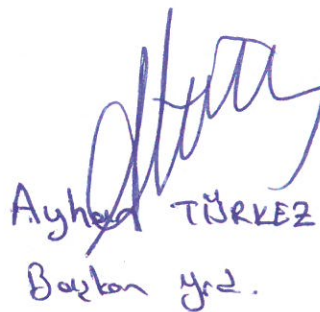 Ayhan TÜRKEZ
Başkan yrd.